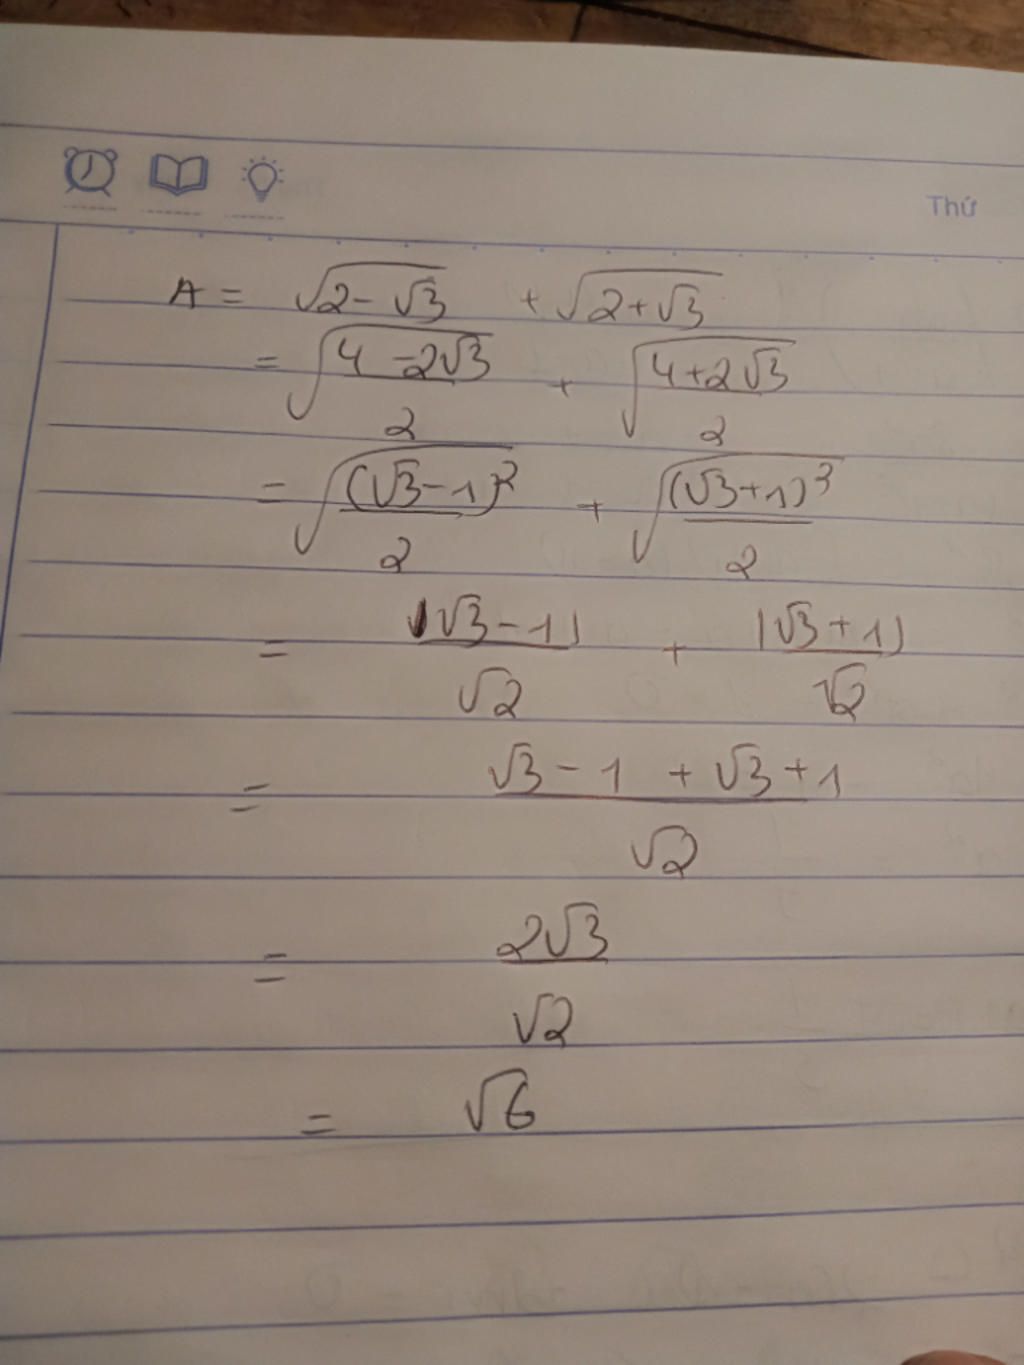 Thứ
A = √(2-√3) + √(2+√3)
= √((4-2√3)/2) + √((4+2√3)/2)
= √((√3-1)²/2) + √((√3+1)³/2)
= |√3-1|/√2 + |√3+1|/√2
= (√3-1+√3+1)/√2
= 2√3/√2
= √6